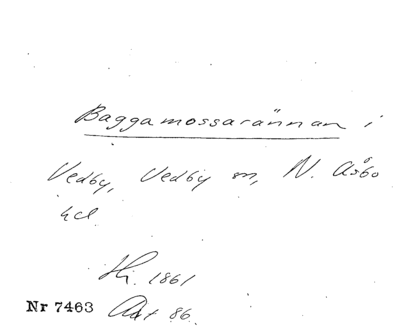 Baggamossarännan i
Vedby, Vedby sn, N. Åsbo
hd.
Hi. 1861
Nr 7463 Akt 86.